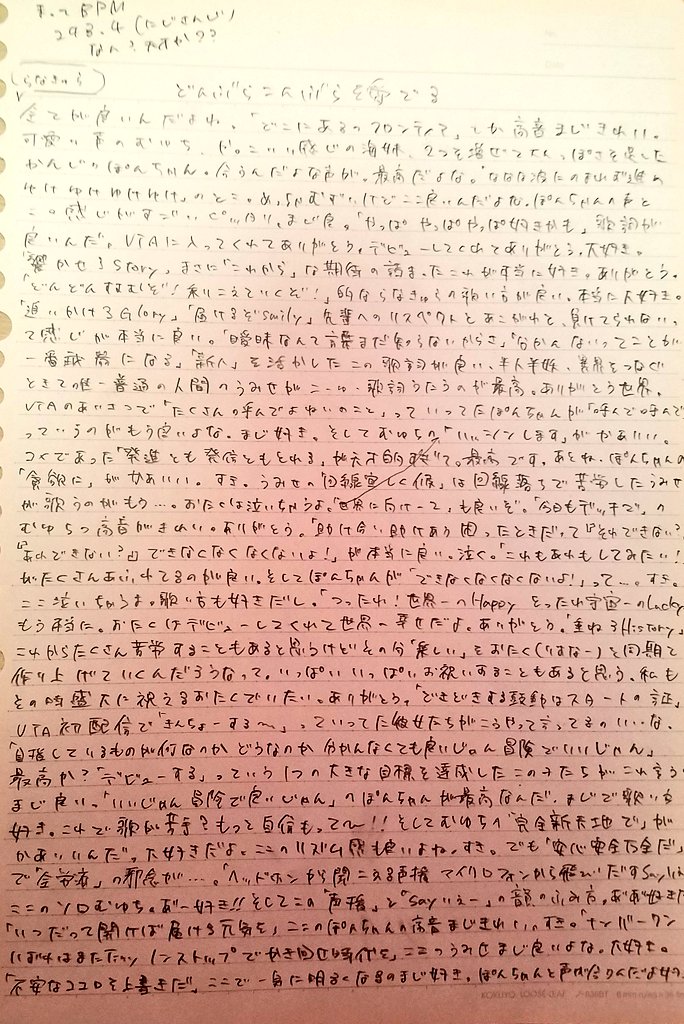 まってBPM
298.4(にじさんじ)
なん?天才か??
(らなきゅら)
どんぶらこんぶらを愛でる
全てが良いんだよね、「どこにあるのフロンティア」とか高音まじきれい。
可愛い声のむゆち、かっこいい感じの海妹、2つを混ぜて大人っぽさを足した
かんじのぽんちゃん。合うんだよな声が。最高だよな。「ななな波にのまれず進め
ゆけゆけゆけゆけ」のとこ。めっちゃむずいけどここ良いんだよな。ぽんちゃんの声と
この感じがすごいピッタリ。まじ良。「やっぱやっぱやっぱ好きかも」歌詞が
良いんだ。VTAに入ってくれてありがとう。デビューしてくれてありがとう。大好き。
「響かせろStory」まさに「これから」な期待の詰まったこれが本当に好き。ありがとう。
「どんどんすすむぞ!乗りこえていくぞ!」的ならなきゅらの歌い方が良い。本当に大好き。
「追いかけるGlory」「届けるぞsmily」先輩へのリスペクトとあこがれと、負けてられないっ
て感じが本当に良い。「曖昧なんて言葉まだ知らないからさ」「分かんないってことが
一番武器になる」「新人」を活かしたこの歌詞が良い、半人半妖、異界をつなぐ
ときて唯一普通の人間のうみせがこーゆー歌詞うたうのが最高。ありがとう世界。
VTAのあいさつで「たくさん呼んでよねぃのこと」っていってたぽんちゃんが「呼んで呼んで」
っていうのがもう良いよな。まじ好き。そしてむゆちの「いいンンします」がかあいい。
コメであった「発進とも発信ともとれる」が天才的すぎて。最高です。あとね、ぽんちゃんの
「貪欲に」がかあいい。すき。うみせの「回線宜しく候」は回線落ちで苦労したうみせ
が歌うのがもう…。おたくは泣いちゃうよ。「世界に向けーて」も良いぞ。「今日もデッキで」の
むゆちっ高音がきれい。ありがとう。「助け合い助けあう困ったときだって」『それできない?
『あれできない?』できなくなくなくないよ!」が本当に良い。泣く。「これもあれもしてみたい!」
がたくさんあふれてるのが良い。そしてぽんちゃんが「できなくなくなくないよ!」って…。すき。
ここ泣いちゃうよ。歌い方も好きだし。「つったれ!世界一のHappy とったれ宇宙一のLucky」
もう本当に。おたくはデビューしてくれて世界一幸せだよ。ありがとう。「重ねるHistory」
これからたくさん苦労することもあると思うけどその分「楽しい」をおたく(りはなー)と同期で
作り上げていくんだろうなって。いっぱいいっぱいお祝いすることもあると思う。私も
その時盛大に祝えるおたくでいたい。ありがとう。「どきどきする鼓動はスタートの証」
VTA初配信で「きんちょーする~」っていってた彼女たちがこうやって言ってるのいいな、
「目指しているものが何なのかどうなのか分かんなくても良いじゃん冒険でいいじゃん」
最高か?「デビューする」っていう1つの大きな目標を達成したこの子たちがこれ言うの
まじ良い。「いいじゃん冒険で良いじゃん」のぽんちゃんが最高なんだ。まじで歌い方
好き。これで歌が苦手?もっと自信もって~!!そしてむゆちの"完全新天地で"が
かあいいんだ。大好きだよ。ここのリズム感も良いよね。すき。でも「安心安全万全だ」
で「全労済」の邪念が…。「ヘッドホンから聞こえる声援 マイクロフォンから飛びだすSayいえー」
ここのソロむゆち。あー好き!!そしてこの「声援」と「Sayいえー」の韻のふみ方。ああ好きだ
「いつだって開けば届ける元気を」ここのぽんちゃんの高音まじきれい。すき。「ナンバーワン
いばればまたたっノンストップでかき回せ時代を」ここのうみせまじ良いよな。大好き。
「不安なココロを上書きだ」ここで一気に明るくなるのまじ好き。ぽんちゃんと声が合うんだよね。
KOKUYO LOOSE-LEAF